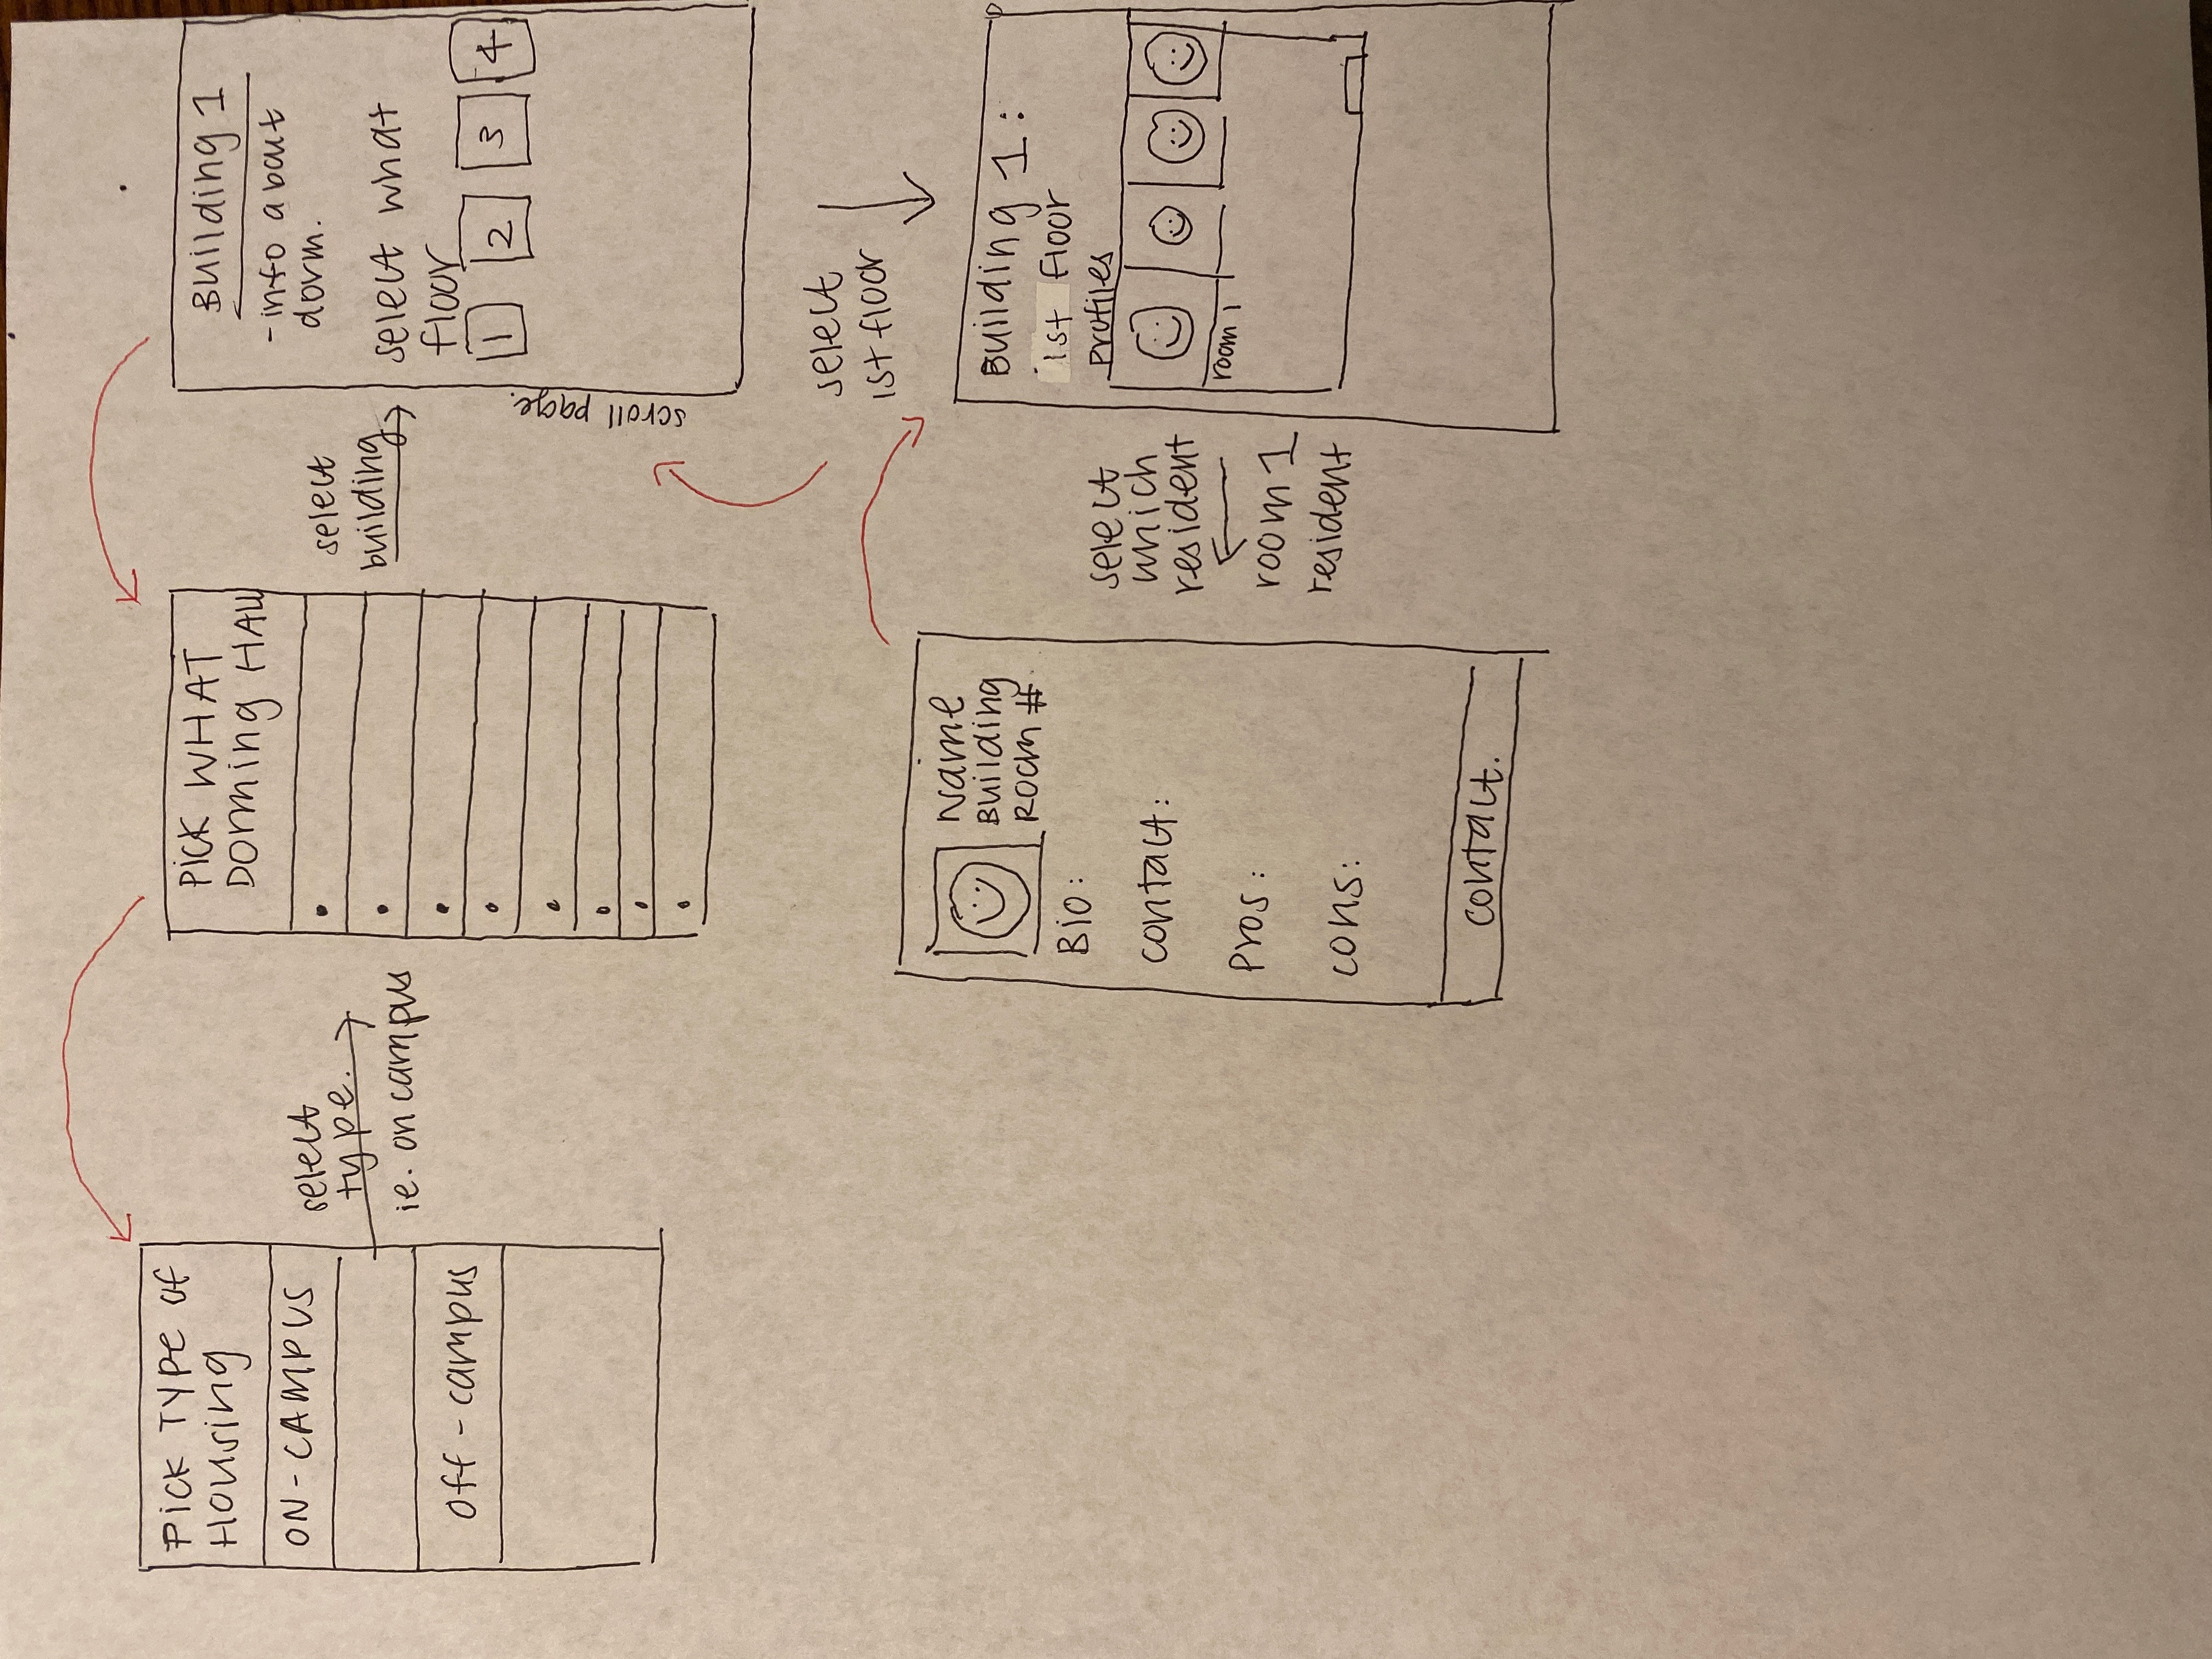 PICK TYPE OF
HOUSING
ON-CAMPUS
Off-campus
select
type.
ie. on campus
PICK WHAT
DORMING HALL
select
building
Building 1
-info about
dorm.
select what
floor
1 2 3 4
scroll page.
select
1st floor
Building 1:
1st floor
Profiles
room 1
select
which
resident
room 1
resident
Name
Building
Room #
Bio:
contact:
Pros:
cons:
contact.